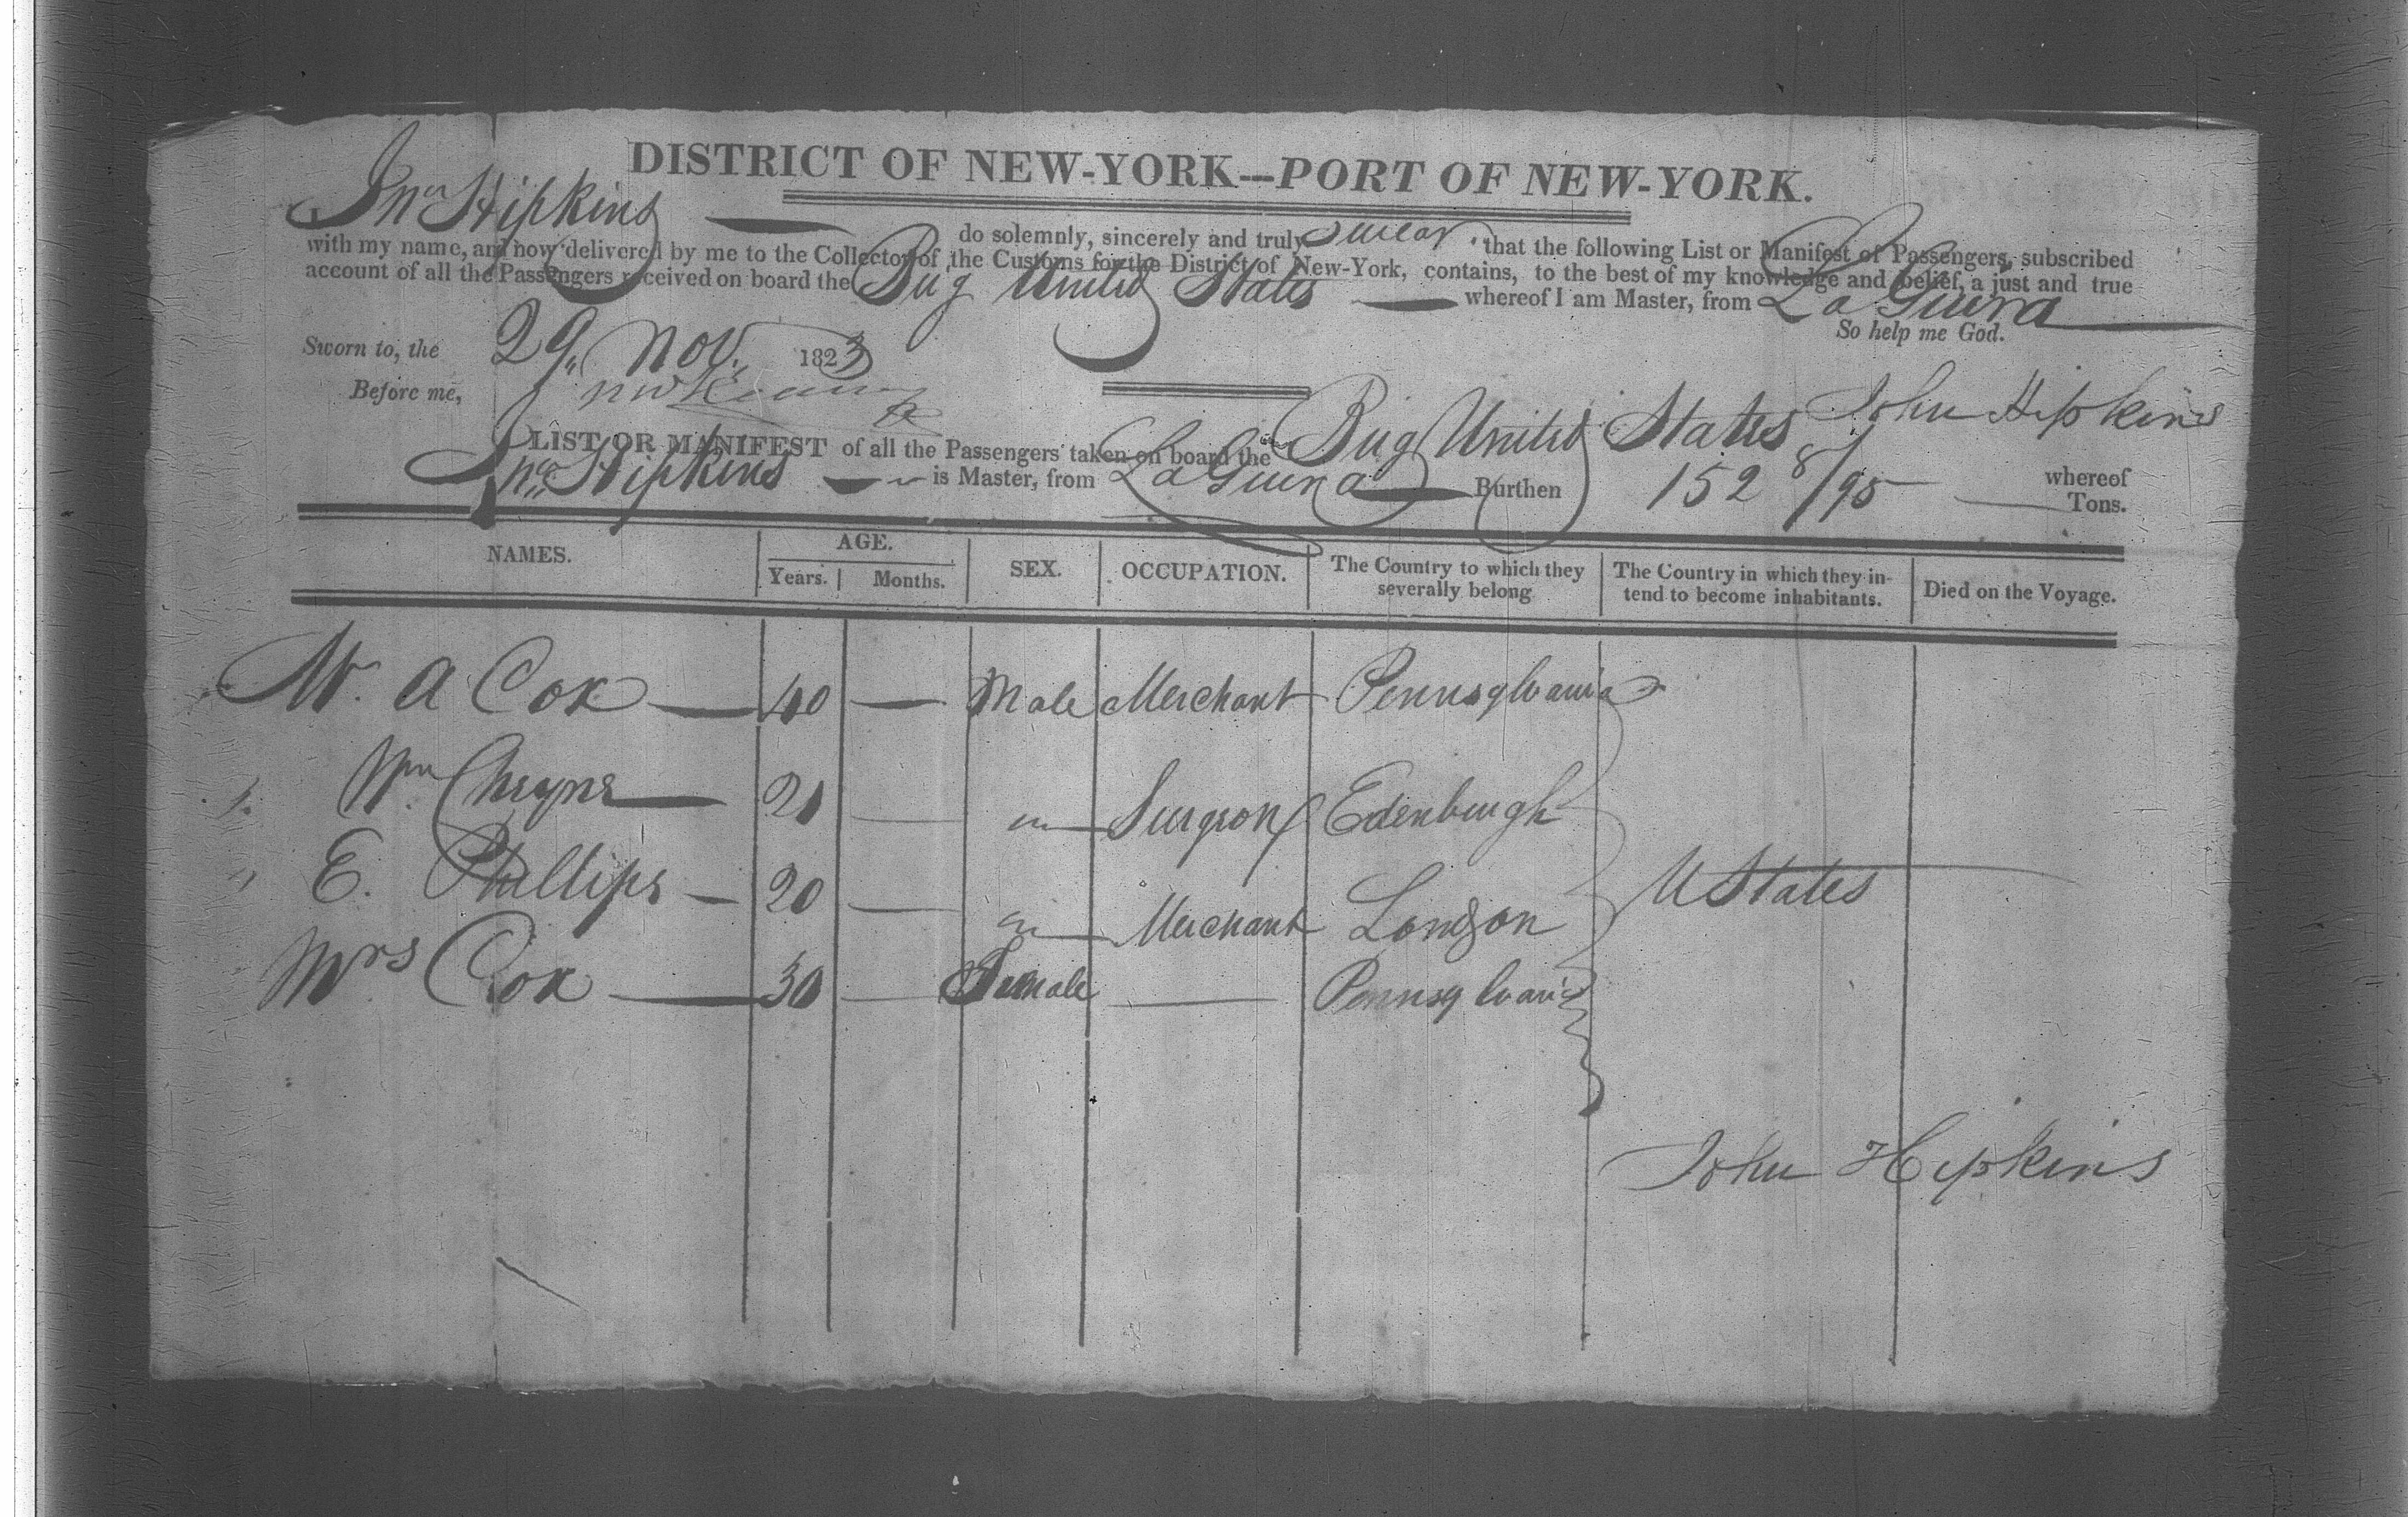 DISTRICT OF NEW-YORK---PORT OF NEW-YORK.
Jno Hipkins do solemnly, sincerely and truly swear that the following List or Manifest of Passengers, subscribed
with my name, and now delivered by me to the Collector of the Customs for the District of New-York, contains, to the best of my knowledge and belief, a just and true
account of all the Passengers received on board the Brig United States whereof I am Master, from La Guira
So help me God.
Sworn to, the 29 Nov. 1823
Before me,
John Hipkins
LIST OR MANIFEST of all the Passengers taken on board the Brig United States whereof
Jno Hipkins is Master, from La Guira Burthen 152 8/95 Tons.
NAMES. AGE. SEX. OCCUPATION. The Country to which they severally belong The Country in which they in-tend to become inhabitants. Died on the Voyage.
Years. Months.
Mr. A Cox 40 — Male Merchant Pennsylvania
" Wm Cheyne 21 — " Surgeon Edenburgh
" E. Phillips 20 — " Merchant London U States
Mrs Cox 30 — Female — Pennsylvania
John Hipkins